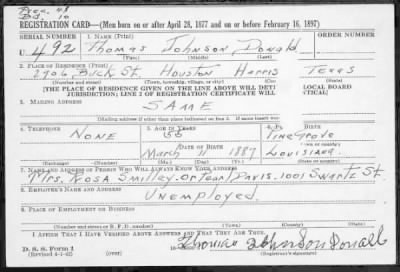 REGISTRATION CARD—(Men born on or after April 28, 1877 and on or before February 16, 1897)
SERIAL NUMBER 1. NAME (Print) ORDER NUMBER
U 492 Thomas Johnson Donald
(First) (Middle) (Last)
2. PLACE OF RESIDENCE (Print)
2906 Buck St. Houston Harris Texas
(Number and street) (Town, township, village, or city) (County) (State)
[THE PLACE OF RESIDENCE GIVEN ON THE LINE ABOVE WILL DETERMINE LOCAL BOARD
JURISDICTION; LINE 2 OF REGISTRATION CERTIFICATE WILL BE IDENTICAL]
3. MAILING ADDRESS
SAME
[Mailing address if other than place indicated on line 2. If same insert word same]
4. TELEPHONE 5. AGE IN YEARS 6. PLACE OF BIRTH
NONE
DATE OF BIRTH
March 11 1887 Louisiana
(Exchange) (Number) (Mo.) (Day) (Yr.) (State or country)
7. NAME AND ADDRESS OF PERSON WHO WILL ALWAYS KNOW YOUR ADDRESS
Mrs. Rosa Smilley. or Pearl Davis. 1001 Swartz St.
8. EMPLOYER'S NAME AND ADDRESS
Unemployed.
9. PLACE OF EMPLOYMENT OR BUSINESS
(Number and street or R. F. D. number) (Town) (County) (State)
I AFFIRM THAT I HAVE VERIFIED ABOVE ANSWERS AND THAT THEY ARE TRUE.
D. S. S. Form 1 Thomas Johnson Donald
(Revised 4-1-42) (over) (Registrant's signature)